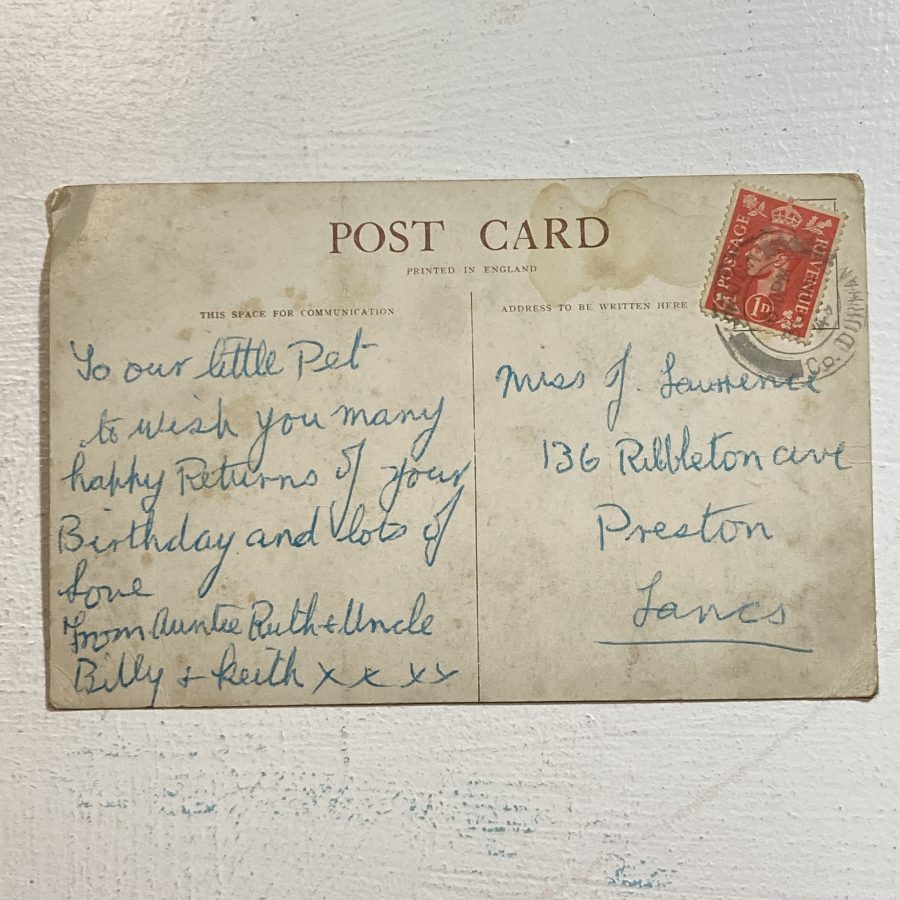 POST CARD
PRINTED IN ENGLAND
THIS SPACE FOR COMMUNICATION
ADDRESS TO BE WRITTEN HERE
POSTAGE
REVENUE
1D
Co. DURHAM
To our little Pet
to wish you many
happy Returns of your
Birthday and lots of
Love
From Auntie Ruth & Uncle
Billy & Keith x x x x
Miss J. Lawrence
136 Ribbleton ave
Preston
Lancs